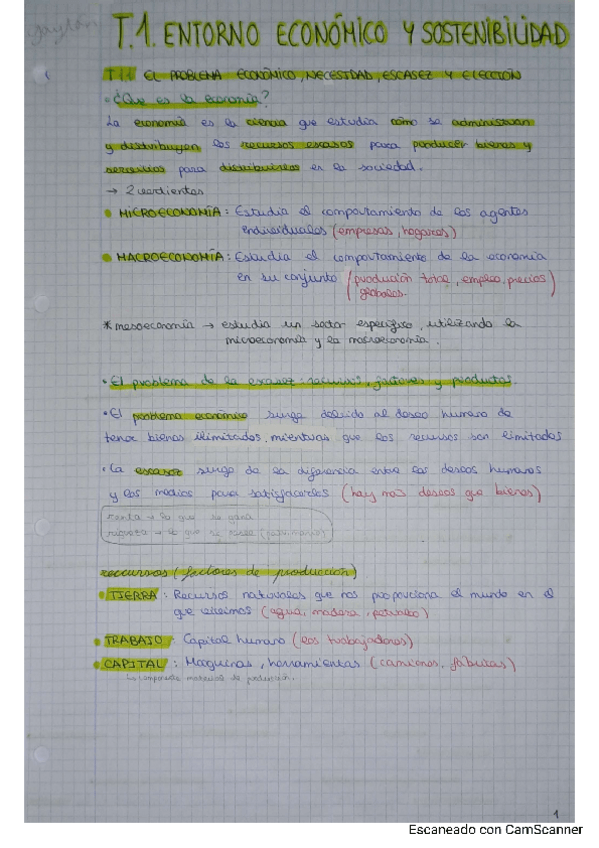 T.1. ENTORNO ECONÓMICO Y SOSTENIBILIDAD
T.1.1 EL PROBLEMA ECONÓMICO, NECESIDAD, ESCASEZ Y ELECCIÓN
• ¿Que es la economía?
La economía es la ciencia que estudia cómo se administran
y distribuyen los recursos escasos para producir bienes y
servicios para distribuirlos en la sociedad.
→ 2 vertientes
• MICROECONOMÍA: Estudia el comportamiento de los agentes
individuales (empresas, hogares)
• MACROECONOMÍA: Estudia el comportamiento de la economía
en su conjunto (producción total, empleo, precios
globales.)
* mesoeconomía → estudia un sector específico, utilizando la
microeconomía y la macroeconomía.
• El problema de la escasez: recursos, factores y productos.
• El problema económico surge debido al deseo humano de
tener bienes ilimitados, mientras que los recursos son limitados
• La escasez surge de la diferencia entre los deseos humanos
y los medios para satisfacerlos (hay mas deseos que bienes)
renta → lo que se gana
riqueza → lo que se posee (patrimonio)
recursos (factores de producción)
• TIERRA: Recursos naturales que nos proporciona el mundo en el
que vivimos (agua, madera, petroleo)
• TRABAJO: Capital humano (los trabajadores)
• CAPITAL: Maquinas, herramientas (camiones, fábricas)
↳ componente material de producción.
1
Escaneado con CamScanner